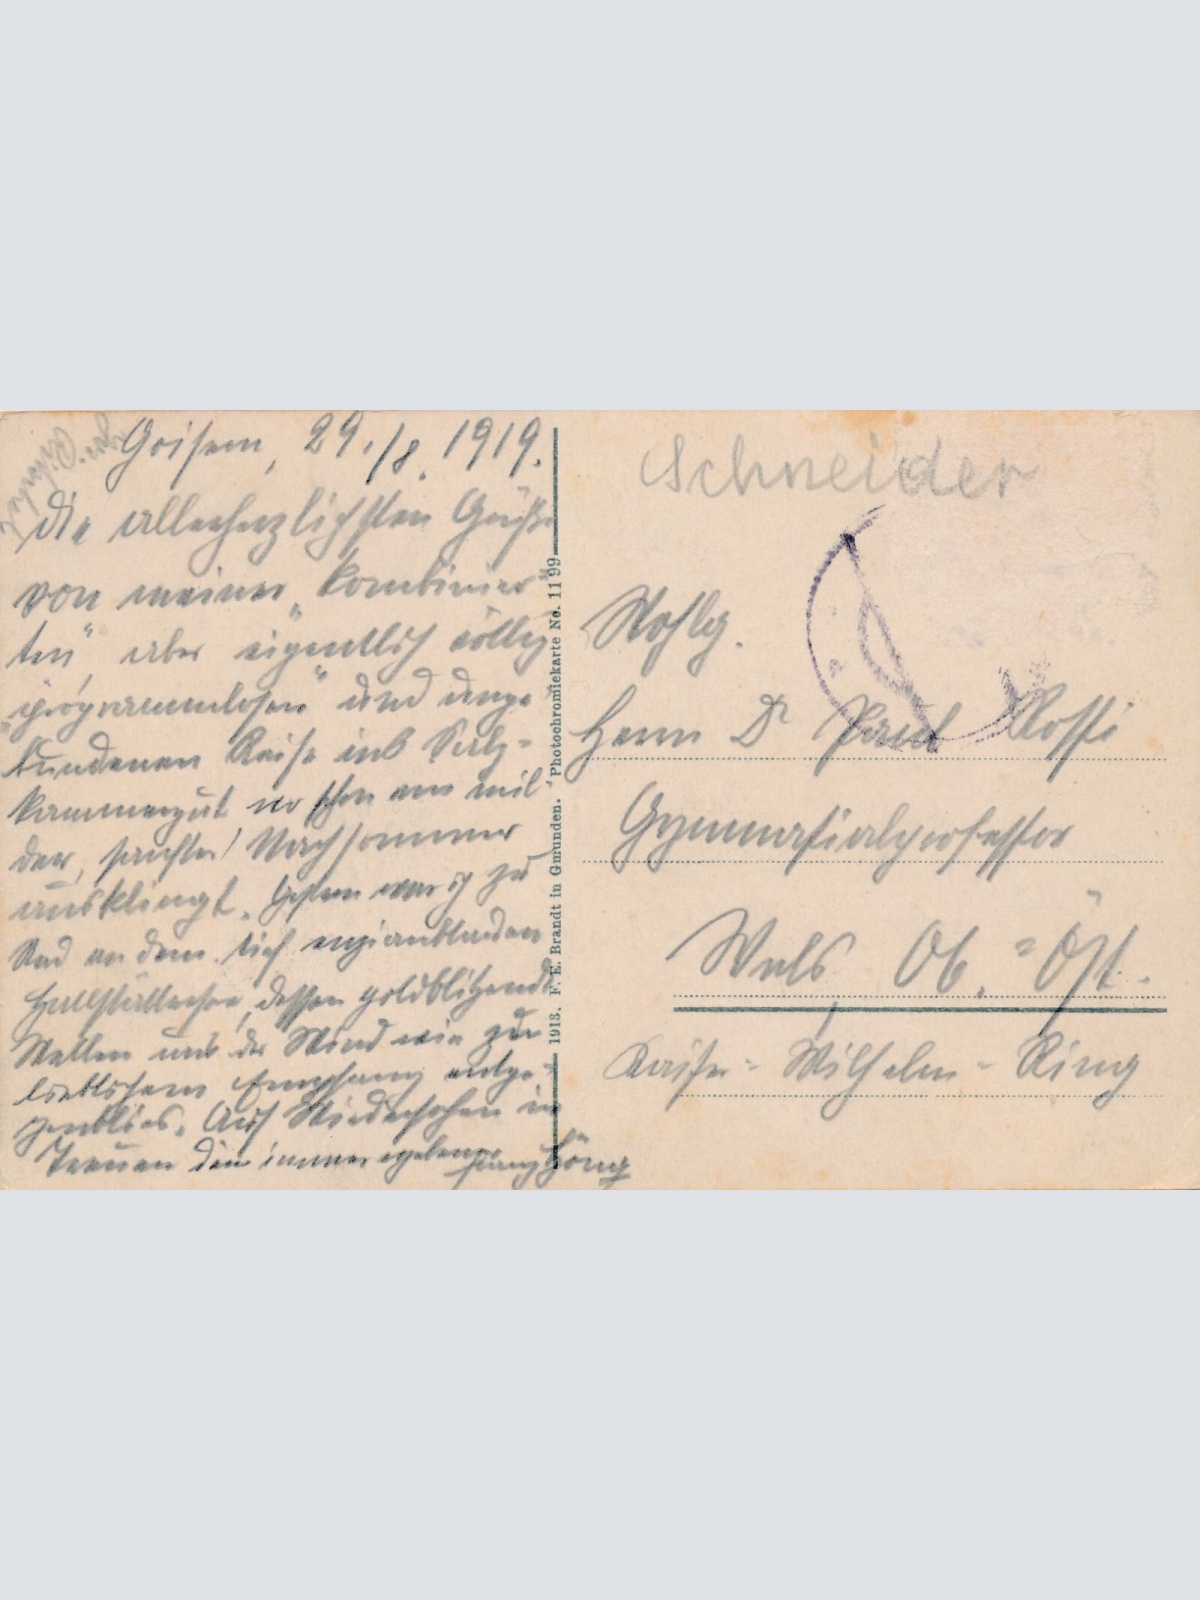 Goisern, 29./8. 1919.
Die allerherzlichsten Grüße
von meiner „kombinier-
ten“ aber eigentlich völlig
„programmlosen“ und unge-
bundenen Reise ins Salz-
kammergut wo schon ein mil-
der, sanfter Nachsommer
ausklingt. Gestern war ich zu
Rad an dem tief enzianblauen
Hallstättersee, dessen goldblitzende
Wellen und der Wind wie zu
Empfang entge-
genblies. Auf Wiedersehen in
Treuen dein immer ergebener Franz
1913. F. E. Brandt in Gmunden. Photochromiekarte No. 1199
Schneider
Wohlg.
Herrn Dr Paul Rossi
Gymnasialprofessor
Wels Ob.=Öst.
Kaiser-Wilhelm-Ring